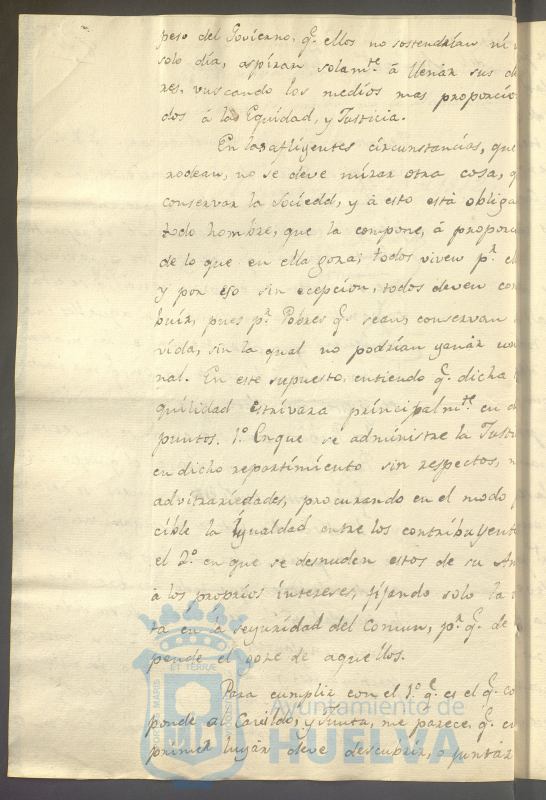 peso del Govierno, q.e ellos no sostendrían ni
solo dia, aspiran solam.te á llenar sus de
res, vuscando los medios mas proporcio
dos á la Equidad, y Justicia.
En las afligentes circunstancias, que
rodean, no se deve mirar otra cosa, q
conservar la Sociedd, y á esto está obliga
todo hombre, que la compone, á proporc
de lo que en ella goza; todos viven p.r el
y por eso sin ecepcion, todos deven con
buir, pues p.r Pobres q.e sean, conservan
vida, sin la qual no podrían ganár
nal. En este supuesto, entiendo q.e dicha
quilidad estrivara principalm.te en d
puntos. 1.o En que se administre la Just
en dicho repartimiento sin respectos, n
advitrariedades, procurando en el modo p
cible la Igualdad entre los contribuyent
el 2.o en que se desnuden estos de su Am
á los proprios intereses, fijando solo la
ta en la seguridad del comun, p.r q.e de
pende el goze de aquellos.
Para cumplir con el 1.o q.e es el q.e co
ponde al Cavildo, y Junta, me parece q.e en
primer lugár deve descubrir, o juntár
PORTUS MARIS ET TERRAE CUSTODIA
Ayuntamiento de
HUELVA